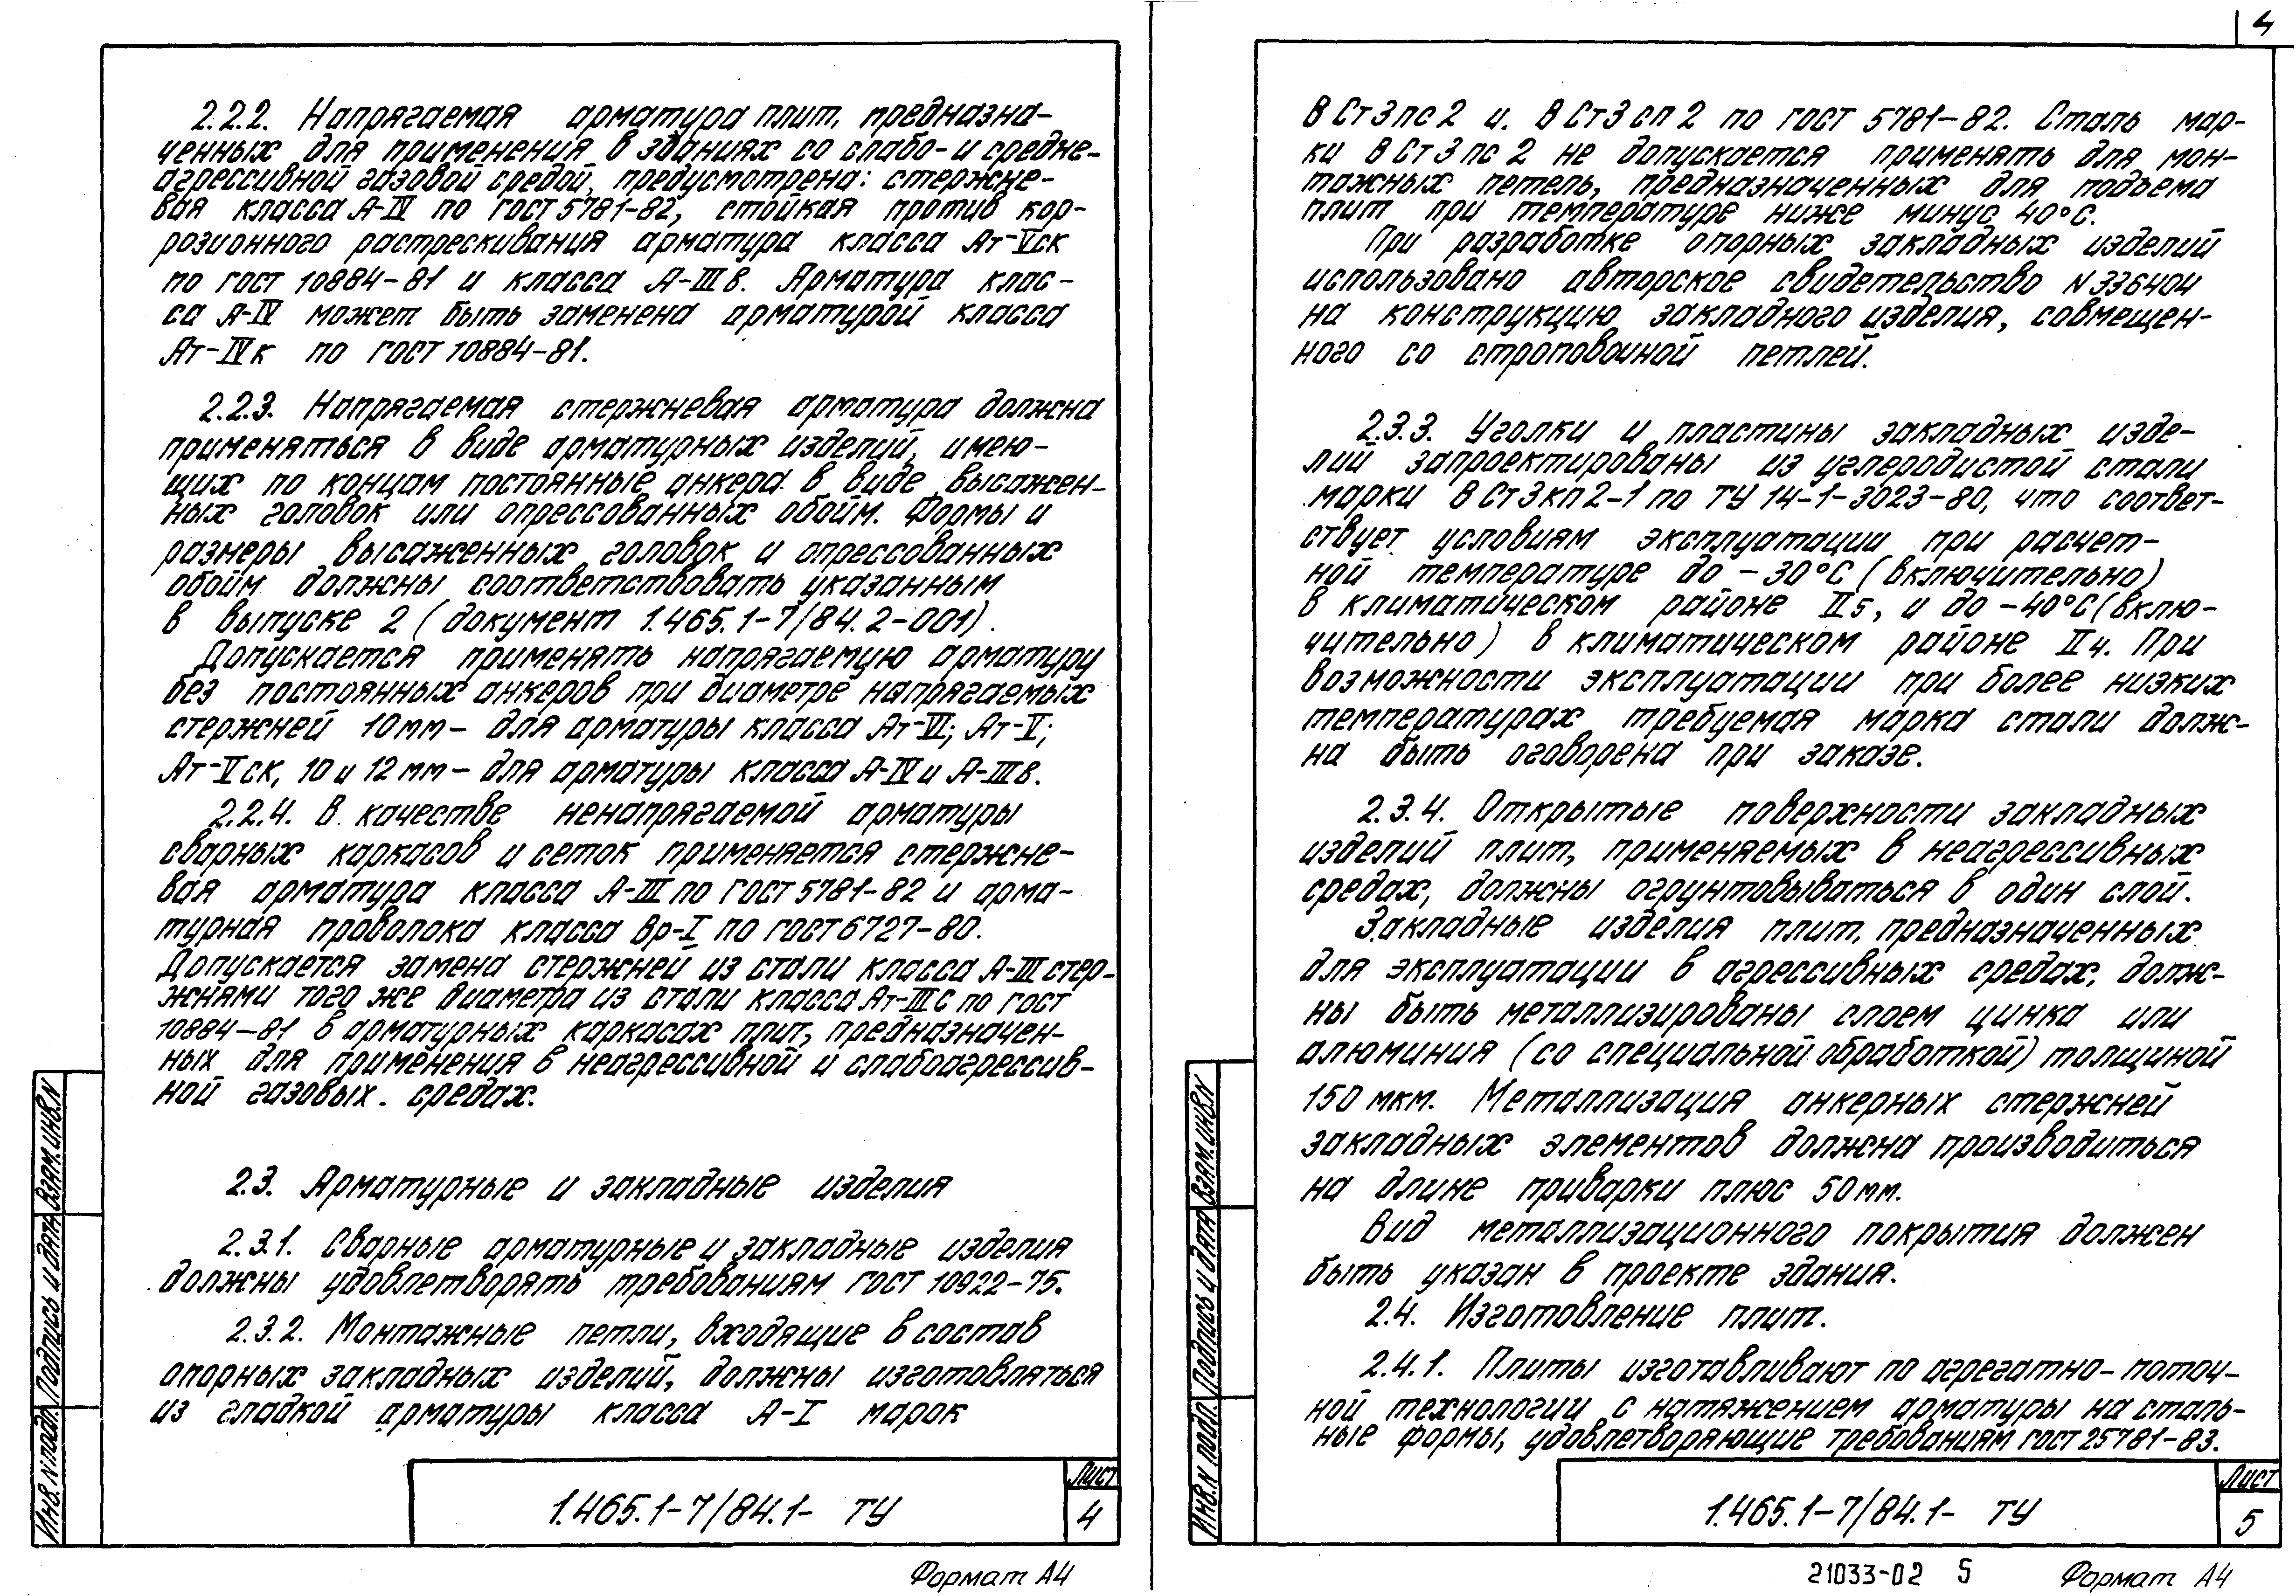 2.2.2. Напрягаемая арматура плит, предназна-
ченных для применения в зданиях со слабо- и средне-
агрессивной газовой средой, предусмотрена: стержне-
вая класса А-IV по ГОСТ 5781-82, стойкая против кор-
розионного растрескивания арматура класса Ат-Vск
по ГОСТ 10884-81 и класса А-IIIв. Арматура клас-
са А-IV может быть заменена арматурой класса
Ат-IVк по ГОСТ 10884-81.
2.2.3. Напрягаемая стержневая арматура должна
применяться в виде арматурных изделий, имею-
щих по концам постоянные анкера в виде высажен-
ных головок или опрессованных обойм. Формы и
размеры высаженных головок и опрессованных
обойм должны соответствовать указанным
в выпуске 2 (документ 1.465.1-7/84.2-001).
Допускается применять напрягаемую арматуру
без постоянных анкеров при диаметре напрягаемых
стержней 10мм - для арматуры класса Ат-VI; Ат-V;
Ат-Vск, 10 и 12мм - для арматуры класса А-IV и А-IIIв.
2.2.4. В качестве ненапрягаемой арматуры
сварных каркасов и сеток применяется стержне-
вая арматура класса А-III по ГОСТ 5781-82 и арма-
турная проволока класса Вр-I по ГОСТ 6727-80.
Допускается замена стержней из стали класса А-III стер-
жнями того же диаметра из стали класса Ат-IIIС по ГОСТ
10884-81 в арматурных каркасах плит, предназначен-
ных для применения в неагрессивной и слабоагрессив-
ной газовых средах.
2.3. Арматурные и закладные изделия
2.3.1. Сварные арматурные и закладные изделия
должны удовлетворять требованиям ГОСТ 10922-75.
2.3.2. Монтажные петли, входящие в состав
опорных закладных изделий, должны изготовляться
из гладкой арматуры класса А-I марок
Инв. N подл. Подпись и дата Взам. инв. N
1.465.1-7/84.1- ТУ
Лист
4
Формат А4
4
В Ст 3 пс 2 и В Ст 3 сп 2 по ГОСТ 5781-82. Сталь мар-
ки В Ст 3 пс 2 не допускается применять для мон-
тажных петель, предназначенных для подъема
плит при температуре ниже минус 40°С.
При разработке опорных закладных изделий
использовано авторское свидетельство N 336404
на конструкцию закладного изделия, совмещен-
ного со строповочной петлей.
2.3.3. Уголки и пластины закладных изде-
лий запроектированы из углеродистой стали
марки В Ст 3 кп 2-1 по ТУ 14-1-3023-80, что соответ-
ствует условиям эксплуатации при расчет-
ной температуре до -30°С (включительно)
в климатическом районе II5, и до -40°С (вклю-
чительно) в климатическом районе II4. При
возможности эксплуатации при более низких
температурах требуемая марка стали долж-
на быть оговорена при заказе.
2.3.4. Открытые поверхности закладных
изделий плит, применяемых в неагрессивных
средах, должны огрунтовываться в один слой.
Закладные изделия плит, предназначенных
для эксплуатации в агрессивных средах, долж-
ны быть металлизированы слоем цинка или
алюминия (со специальной обработкой) толщиной
150 мкм. Металлизация анкерных стержней
закладных элементов должна производиться
на длине приварки плюс 50мм.
Вид металлизационного покрытия должен
быть указан в проекте здания.
2.4. Изготовление плит.
2.4.1. Плиты изготавливают по агрегатно-поточ-
ной технологии с натяжением арматуры на сталь-
ные формы, удовлетворяющие требованиям ГОСТ 25781-83.
Инв. N подл. Подпись и дата Взам. инв. N
1.465.1-7/84.1- ТУ
Лист
5
21033-02 5 Формат А4